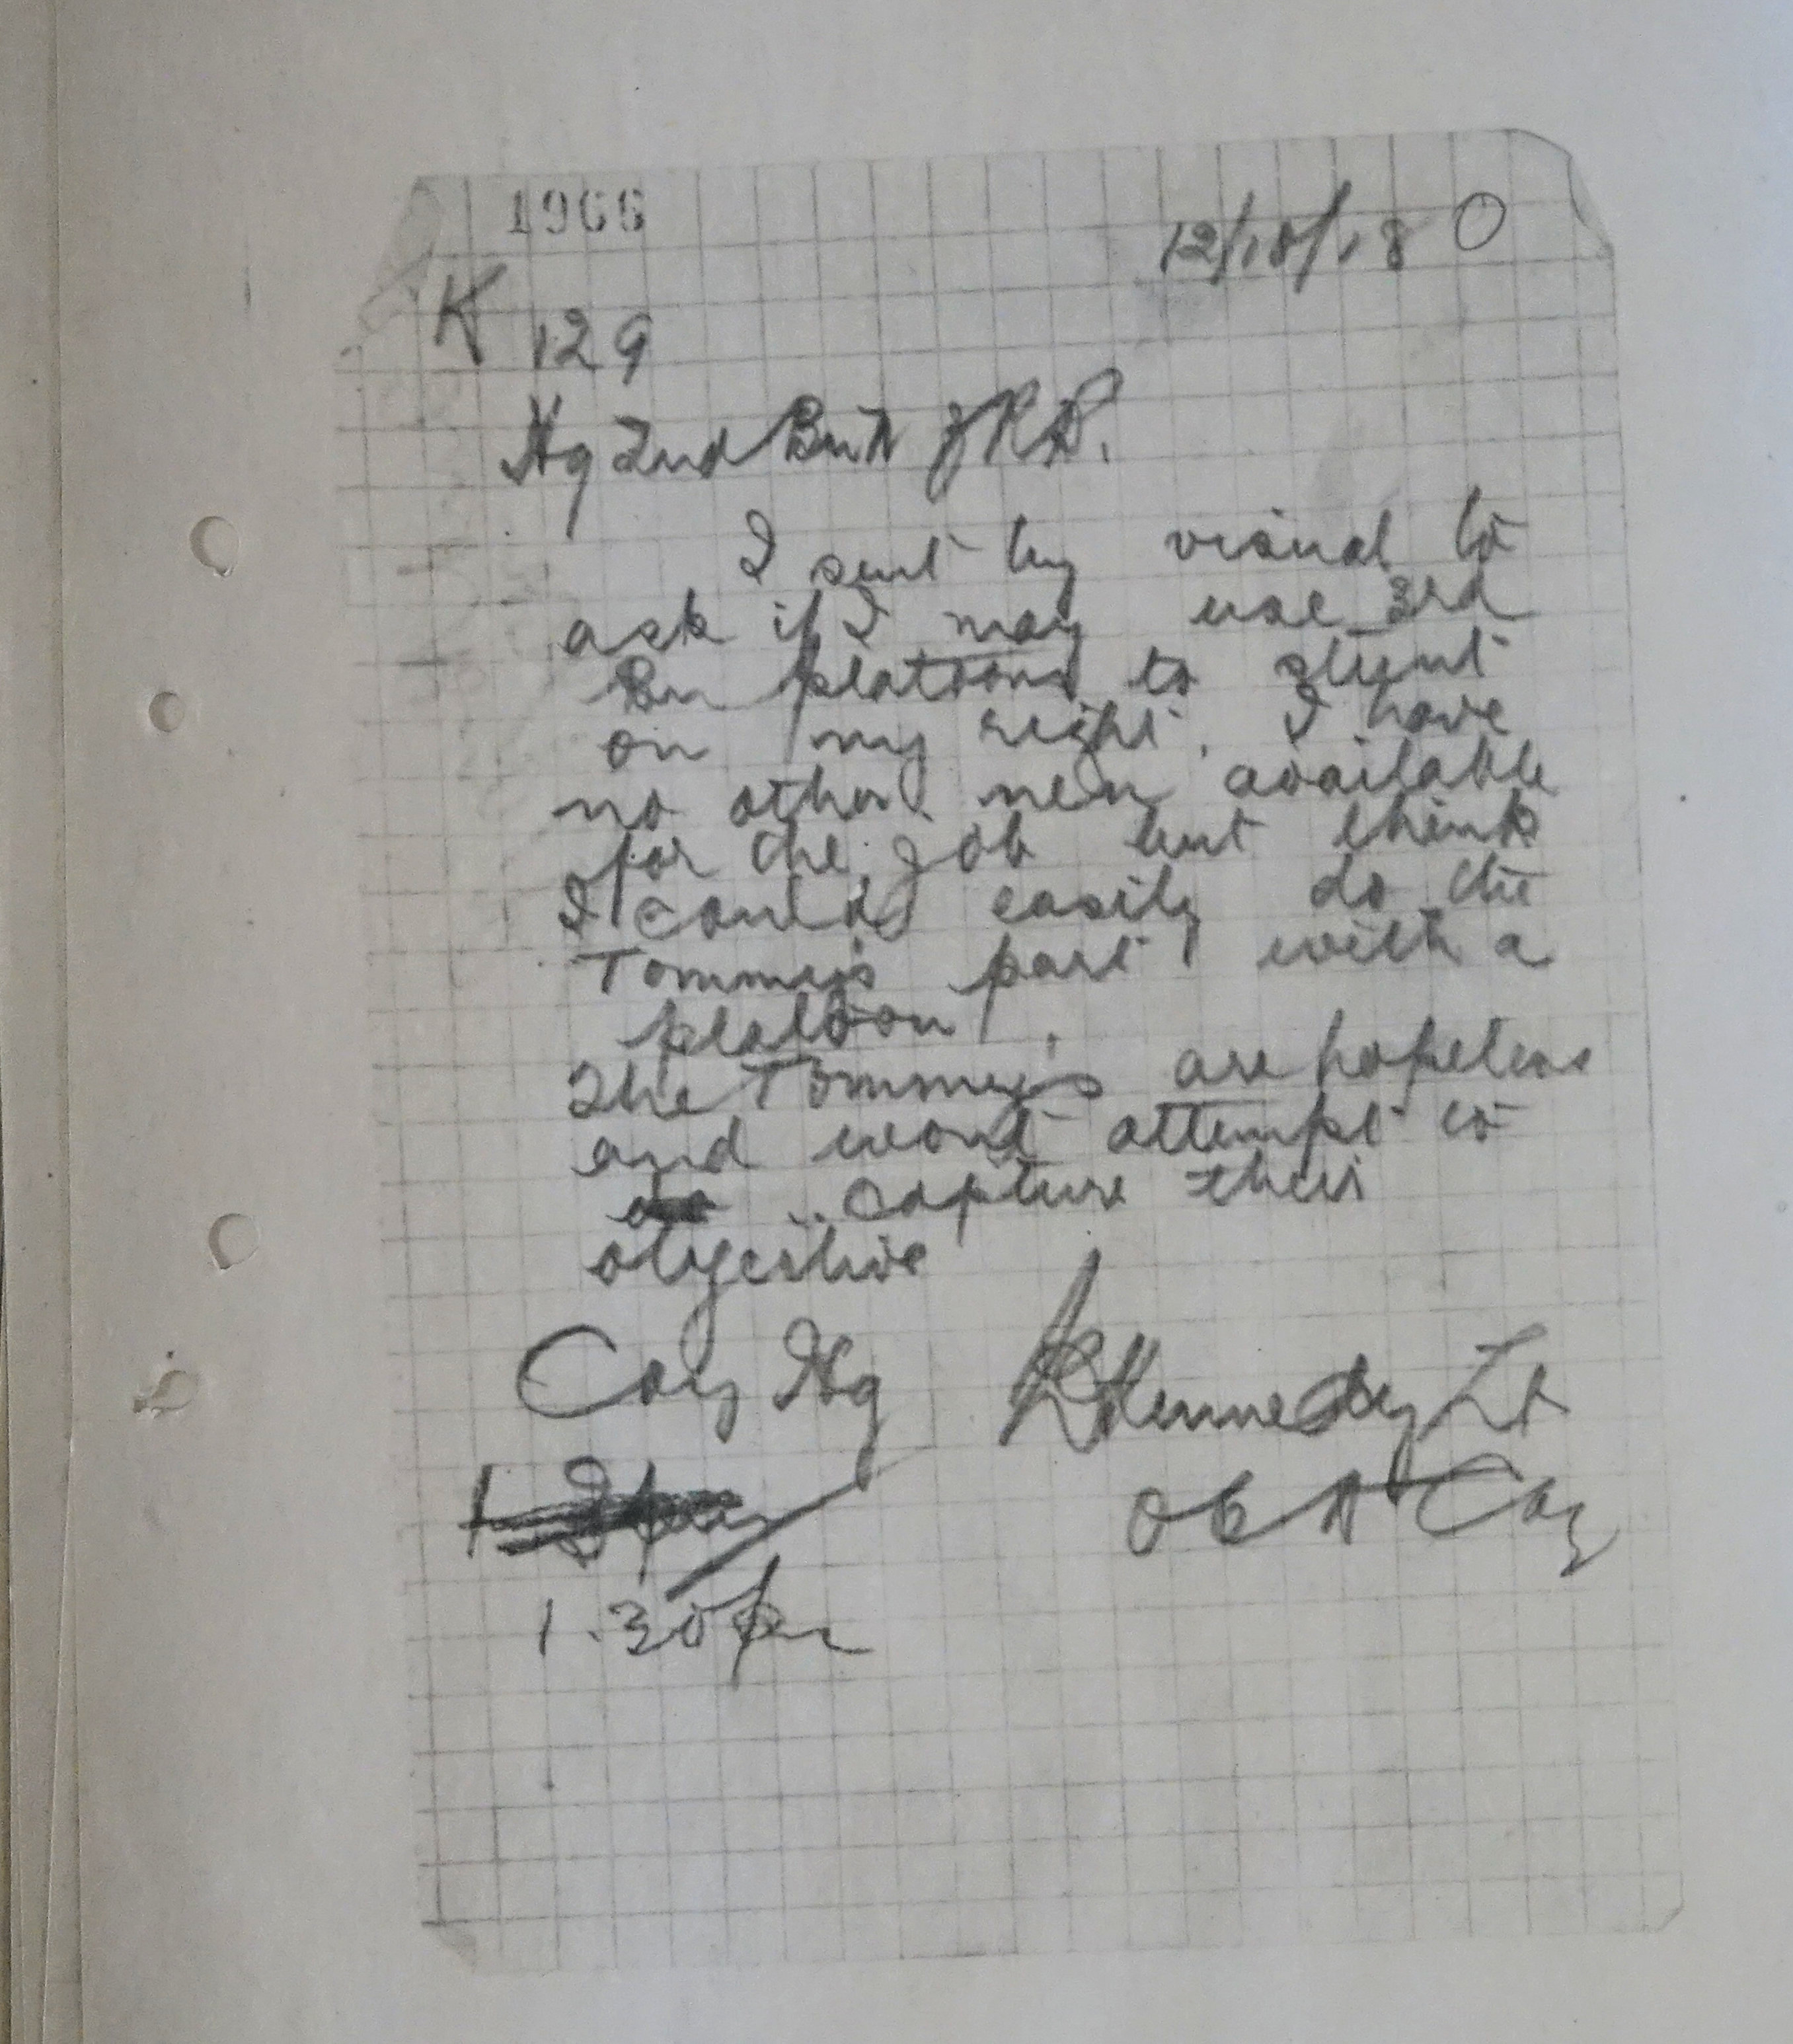 1966
12/10/18 O
K 129
Hq 2nd Bn N Z R B.
I sent by visual to
ask if I may use 3rd
Bn platoons to stunt
on my right. I have
no other men available
for the job but think
I could easily do the
Tommy's part with a
platoon.
The Tommys are hopeless
and wont attempt to
do capture their
objective
Coy Hq Kennedy Lt
OC A Coy
1.30 pm